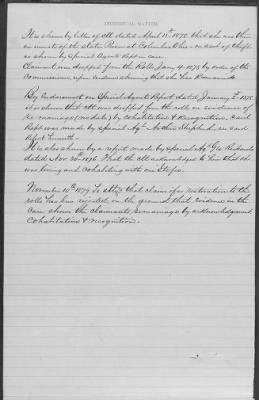 INCIDENTAL MATTER.
It is shown by letter of Atty dated April 11th 1878 that she was then
an inmate of the state Prison at Columbus Ohio
as shown by Special Agents Rept in case.
Claimant was dropped from the Rolls Jany 4. 1878 by order of the
Commissioner, upon evidence showing that she has Remarried
By Endorsement on Special Agents Report dated January 2d 1878
it is shown that clt was dropped from the rolls on evidence of
Re marriage by cohabitation & Recognition, said
Rept was made by Special Agt Shepherd, see said
Report herewith.
It is also shown by a report made by Special Agt Geo. Richards
dated Nov 30th 1876 That the clt acknowledged to him that she
was living and cohabiting with one
November 10th 1879 To Atty that claim for restoration to the
rolls has been rejected on the ground that evidence in the
case shows the claimants remarriage by acknowledgement
Cohabitation & recognition.